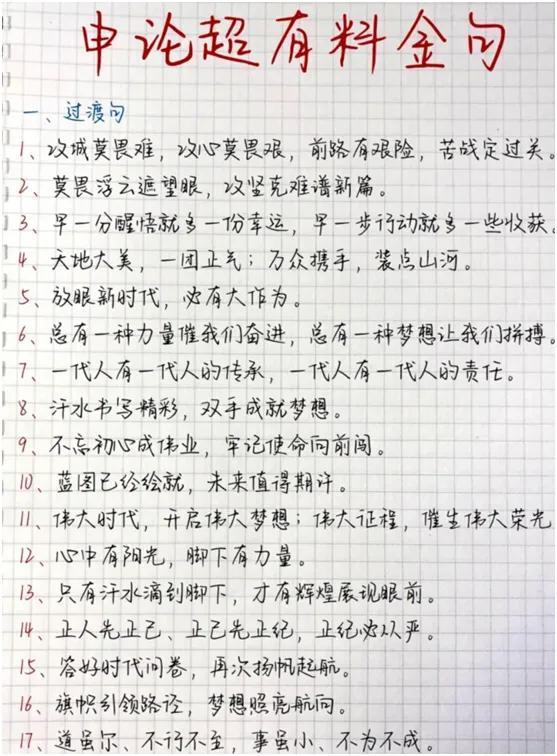 申论超有料金句
一、过渡句
1、攻城莫畏难，攻心莫畏艰，前路有艰险，苦战定过关。
2、莫畏浮云遮望眼，攻坚克难谱新篇。
3、早一分醒悟就多一份幸运，早一步行动就多一些收获。
4、天地大美，一团正气；万众携手，装点山河。
5、放眼新时代，必有大作为。
6、总有一种力量催我们奋进，总有一种梦想让我们拼搏。
7、一代人有一代人的传承，一代人有一代人的责任。
8、汗水书写精彩，双手成就梦想。
9、不忘初心成伟业，牢记使命向前闯。
10、蓝图已经绘就，未来值得期许。
11、伟大时代，开启伟大梦想；伟大征程，催生伟大荣光
12、心中有阳光，脚下有力量。
13、只有汗水滴到脚下，才有辉煌展现眼前。
14、正人先正己、正己先正纪，正纪必从严。
15、答好时代问卷，再次扬帆起航。
16、旗帜引领路径，梦想照亮航向。
17、道虽尔、不行不至，事虽小、不为不成。